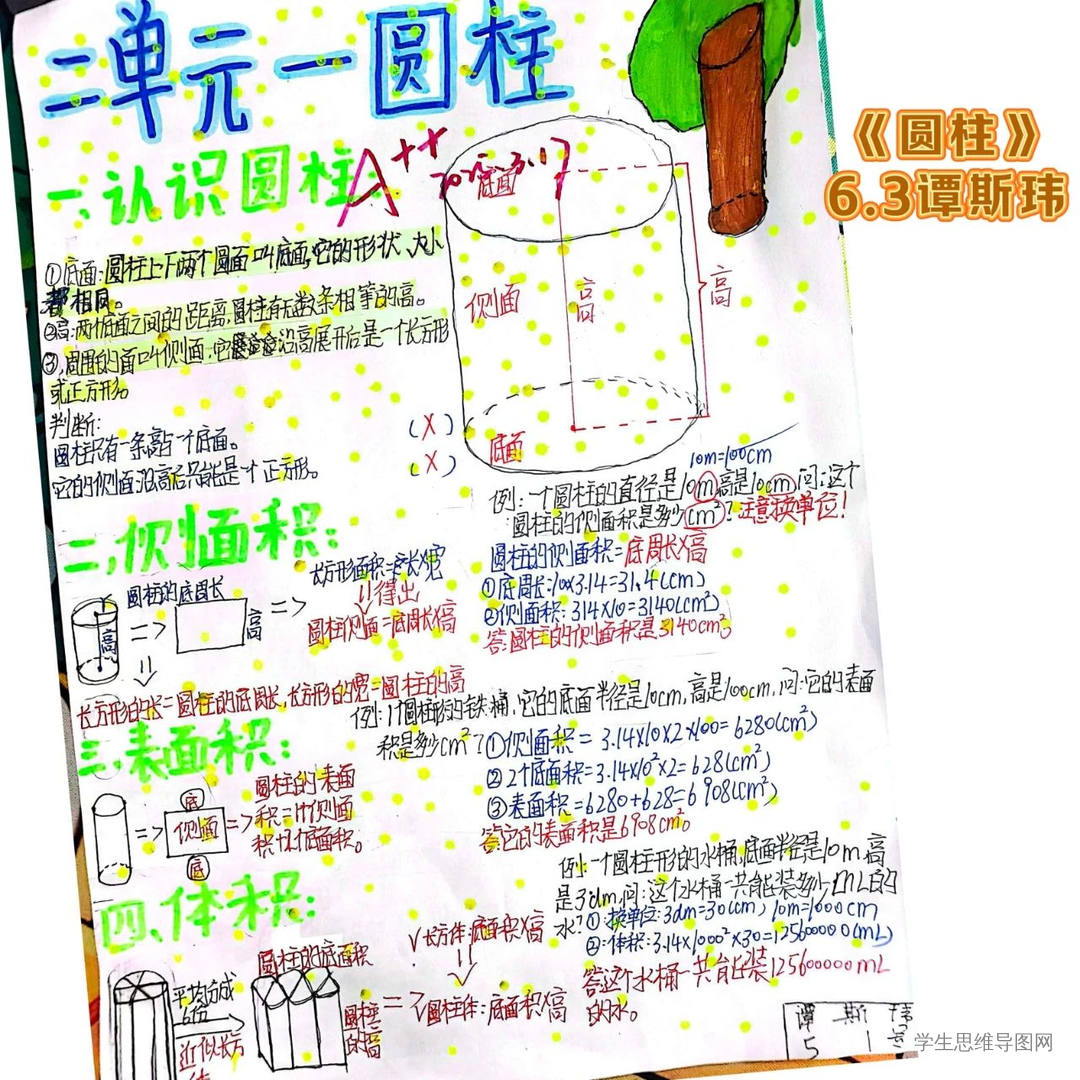 二单元一圆柱
《圆柱》
6.3谭斯玮
一、认识圆柱:
A++
底面
侧面
高
高
底面
①底面:圆柱上下两个圆面叫底面,它的形状、大小
都相同。
②高:两个底面之间的距离,圆柱有无数条相等的高。
③周围的面叫侧面,它沿高展开后是一个长方形
或正方形。
判断:
圆柱只有一条高 一个底面。
(X)
它的侧面沿高后只能是一个正方形。
(X)
10m=100cm
例:一个圆柱的直径是10m高是10cm,问:这个
圆柱的侧面积是多少cm²?注意换单位!
二、侧面积:
圆柱的底周长
高
=>
=>
长方形面积=长X宽
得出
圆柱侧面=底周长X高
圆柱的侧面积=底周长X高
①底周长:10X3.14=31.4(cm)
②侧面积:314X10=3140(cm²)
答:圆柱的侧面积是3140cm²
长方形的长=圆柱的底周长,长方形的宽=圆柱的高
三、表面积:
例:1个圆柱形的铁桶,它的底面半径是10cm,高是100cm,问:它的表面
积是多少cm²?①侧面积=3.14X10X2X100=6280(cm²)
②2个底面积=3.14X10²X2=628(cm²)
③表面积=6280+628=6908(cm²)
答:它的表面积是6908cm²。
=>
底
侧面
底
=>
圆柱的表面
积=1个侧面
积+2个底面积。
四、体积:
例:一个圆柱形的水桶,底面半径是10m,高
是3dm,问:这个水桶一共能装多少mL的
水?①换单位:3dm=30(cm),10m=1000cm
②体积:3.14X1000²X30=12560000(mL)
答:这个水桶一共能装12560000mL
的水。
平均分成
近似长方
体
圆柱的底面积
圆柱
的高
=>
V长方体:底面积X高
V圆柱体:底面积X高
谭斯玮
5 1号
学生思维导图网